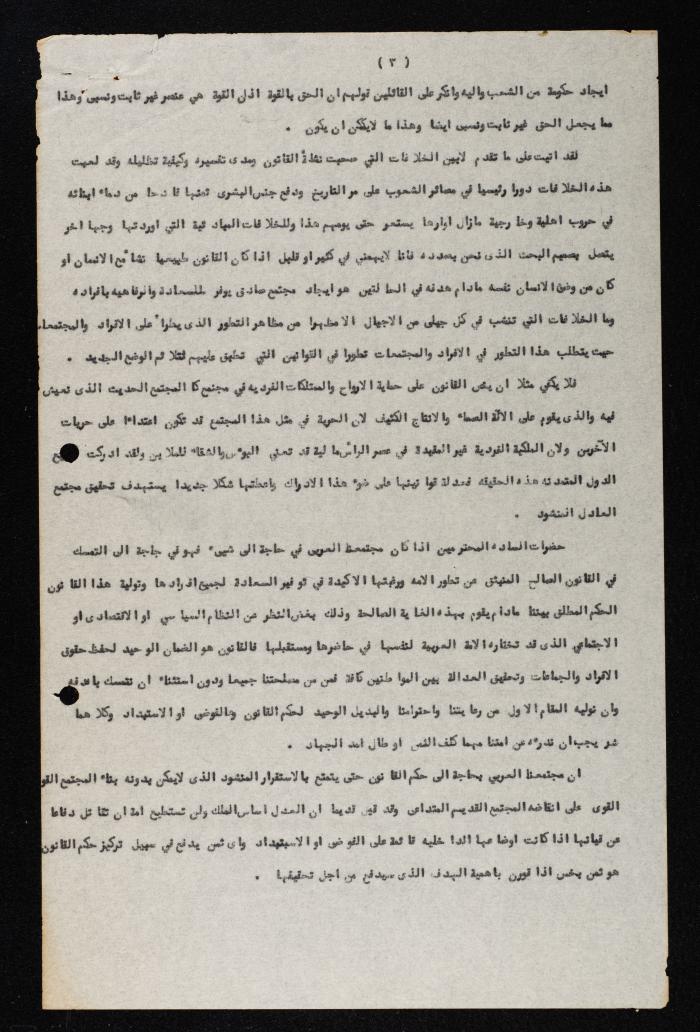 ( ٣ )
ايجاد حكومة من الشعب واليه وانكر على القائلين قولهم ان الحق بالقوة اذ ان القوة هي عنصر غير ثابت ونسبى وهذا
مما يجعل الحق غير ثابت ونسبى ايضا وهذا ما لايمكن ان يكون .
لقد اتيت على ما تقدم لابين الخلافات التي صحبت نشأة القانون ومدى تفسيره وكيفية تظليله وقد لعبت
هذه الخلافات دورا رئيسيا في مصائر الشعوب على مر التاريخ ودفع جنس البشرى ثمنها فادحا من دماء ابنائه
في حروب اهلية وخارجية مازال اوارها يستعر حتى يومهم هذا وللخلافات المبادئية التي اوردتها وجها اخر
يتصل بصميم البحث الذى نحن بصدده فانا لايهمني في كثير او قليل اذا كان القانون طبيعيا نشأ مع الانسان او
كان من وضع الانسان نفسه مادام هدفه في الحالتين هو ايجاد مجتمع صادق يوفر للسعادة والرفاهيه بافراده
وما الخلافات التي تنشب في كل جيل من الاجيال الا مظهرا من مظاهر التطور الذى يطرأ على الافراد والمجتمعات
حيث يتطلب هذا التطور في الافراد والمجتمعات تطورا في القوانين التي تطبق عليهم لتلائم الوضع الجديد .
فلا يكفي مثلا ان ينص القانون على حماية الارواح والممتلكات الفرديه في مجتمع كالمجتمع الحديث الذى نعيش
فيه والذى يقوم على الآلة الصماء والانتاج الكثيف لان الحرية في مثل هذا المجتمع قد تكون اعتداءا على حريات
الآخرين ولان الملكية الفردية غير المقيدة في عصر الرأسمالية قد تعني البؤس والشقاء للملايين ولقد ادركت
الدول المتمدنه هذه الحقيقه فعدلة قوانينها على ضوء هذا الادراك واعطتها شكلا جديدا يستهدف تحقيق مجتمع
العادل المنشود .
حضرات الساده المحترمين اذا كان مجتمعنا العربي في حاجة الى شيىء فهو في حاجة الى التمسك
في القانون الصالح المنبثق عن تطور الامه ورغبتها الاكيدة في توفير السعادة لجميع افرادها وتولية هذا القانون
الحكم المطلق بيننا مادام يقوم بهذه الغاية الصالحة وذلك بغض النظر عن النظام السياسي او الاقتصادى او
الاجتماعي الذى قد تختاره الامة العربية لنفسها في حاضرها ومستقبلها فالقانون هو الضمان الوحيد لحفظ حقوق
الافراد والجماعات وتحقيق العدالة بين المواطنين كافة فمن من مصلحتنا جميعا ودون استثناء ان نتمسك
وان نوليه المقام الاول من رعايتنا واحترامنا والبديل الوحيد لحكم القانون هو الفوضى او الاستبداد وكلاهما
شر يجب ان ندرءه عن امتنا مهما كلف الثمن او طال امد الجهاد .
ان مجتمعنا العربي بحاجة الى حكم القانون حتى يتمتع بالاستقرار المنشود الذى لايمكن بدونه بناء المجتمع القو
القوى على انقاضه المجتمع القديم المتداعى وقد قيل قديما ان العدل اساس الملك ولن تستطيع امة ان تقاتل دفاعا
عن قيانها اذا كانت اوضاعها الداخليه قائمة على الفوضى او الاستبداد واى ثمن يدفع في سبيل تركيز حكم القانون
هو ثمن بخس اذا قورن باهمية الهدف الذى سيدفع من اجل تحقيقها .